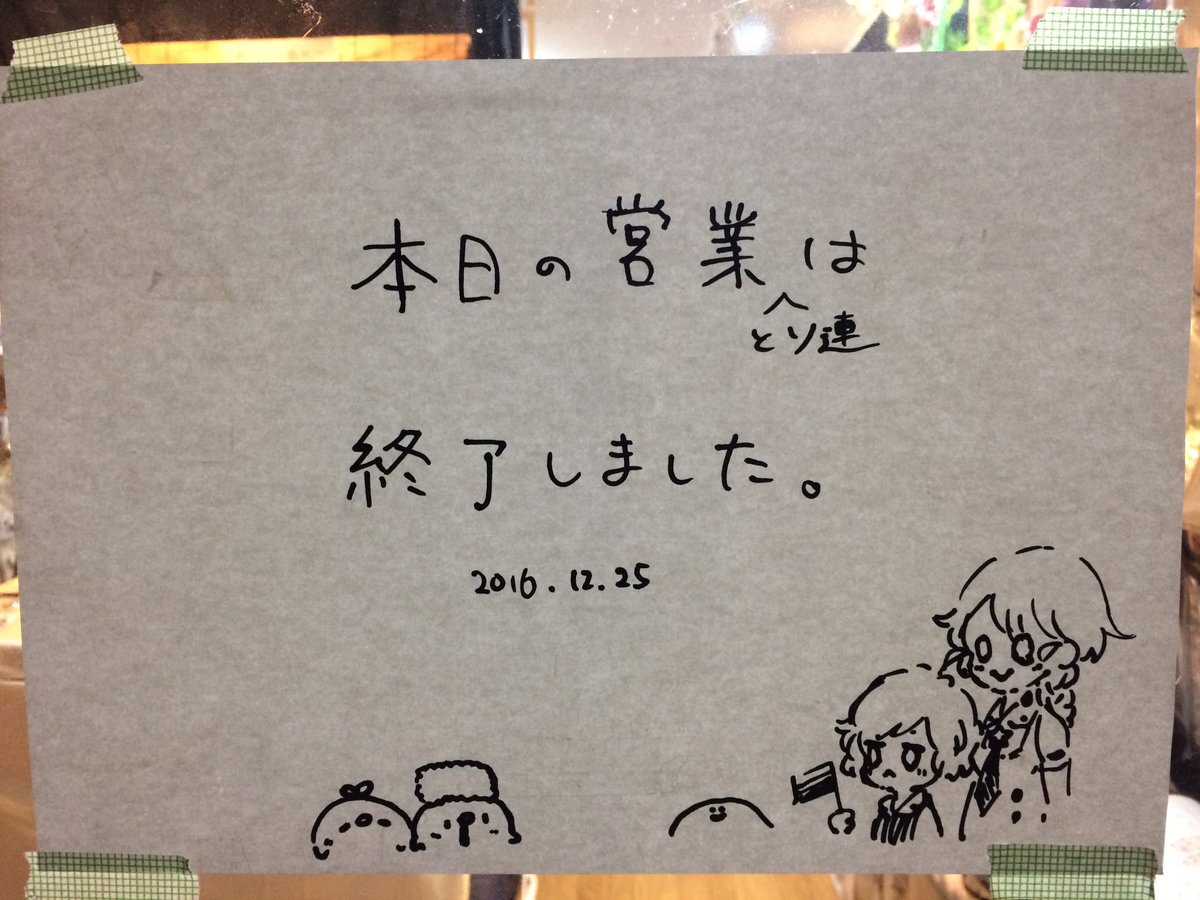 本日の営業は
とり連
終了しました。
2016.12.25